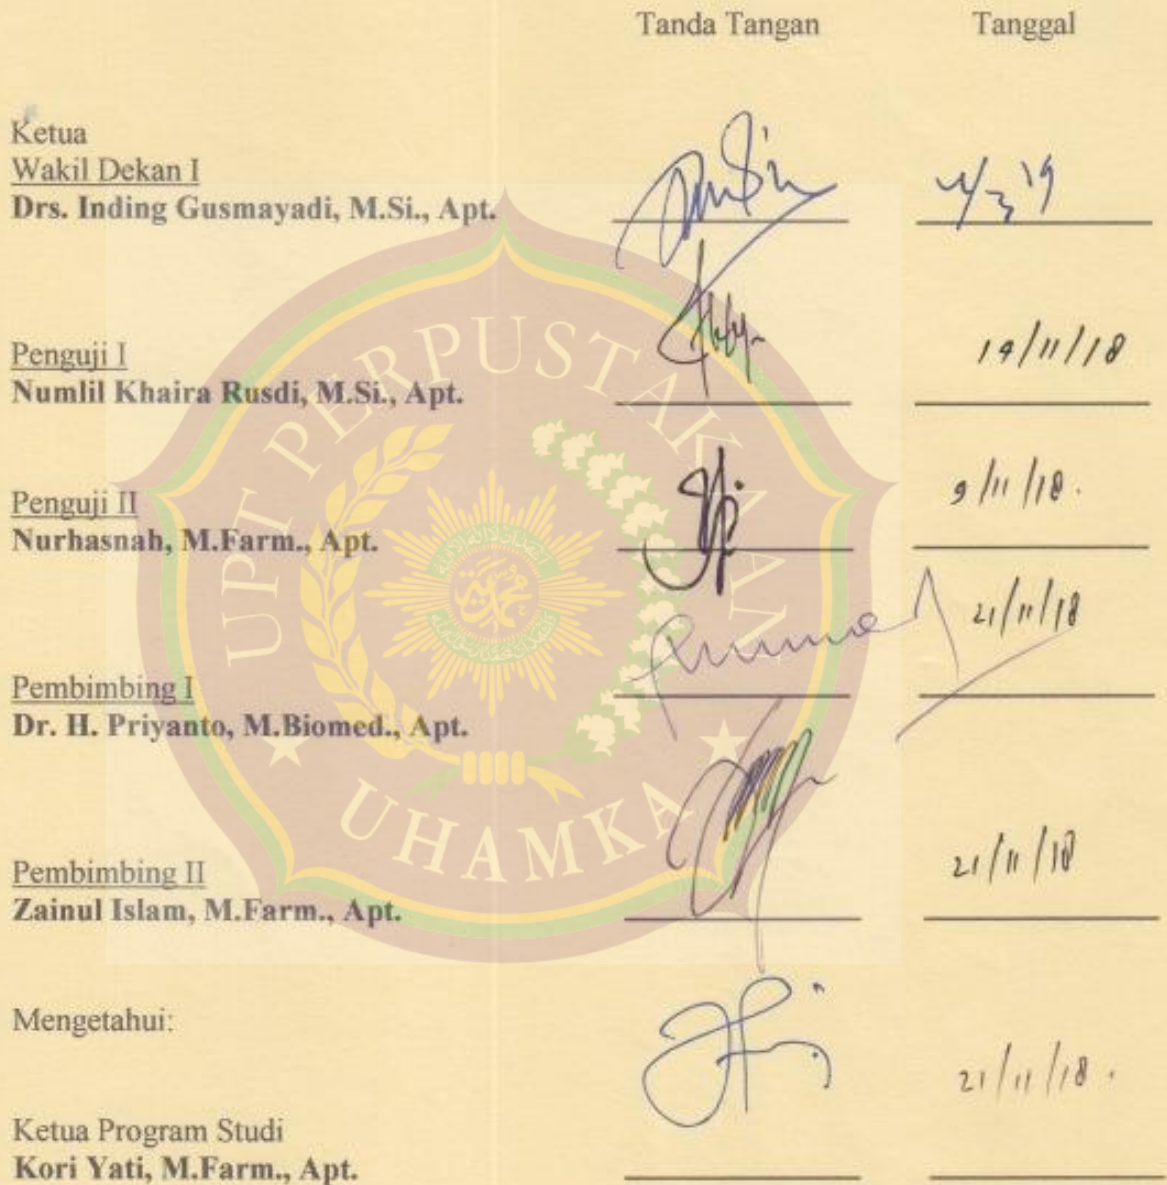 Tanda Tangan Tanggal
Ketua
Wakil Dekan I
Drs. Inding Gusmayadi, M.Si., Apt.
Penguji I
Numlil Khaira Rusdi, M.Si., Apt.
19/11/18
Penguji II
Nurhasnah, M.Farm., Apt.
9/11/18.
Pembimbing I
Dr. H. Priyanto, M.Biomed., Apt.
21/11/18
Pembimbing II
Zainul Islam, M.Farm., Apt.
21/11/18
Mengetahui:
Ketua Program Studi
Kori Yati, M.Farm., Apt.
21/11/18.
UPT PERPUSTAKAAN
UHAMKA